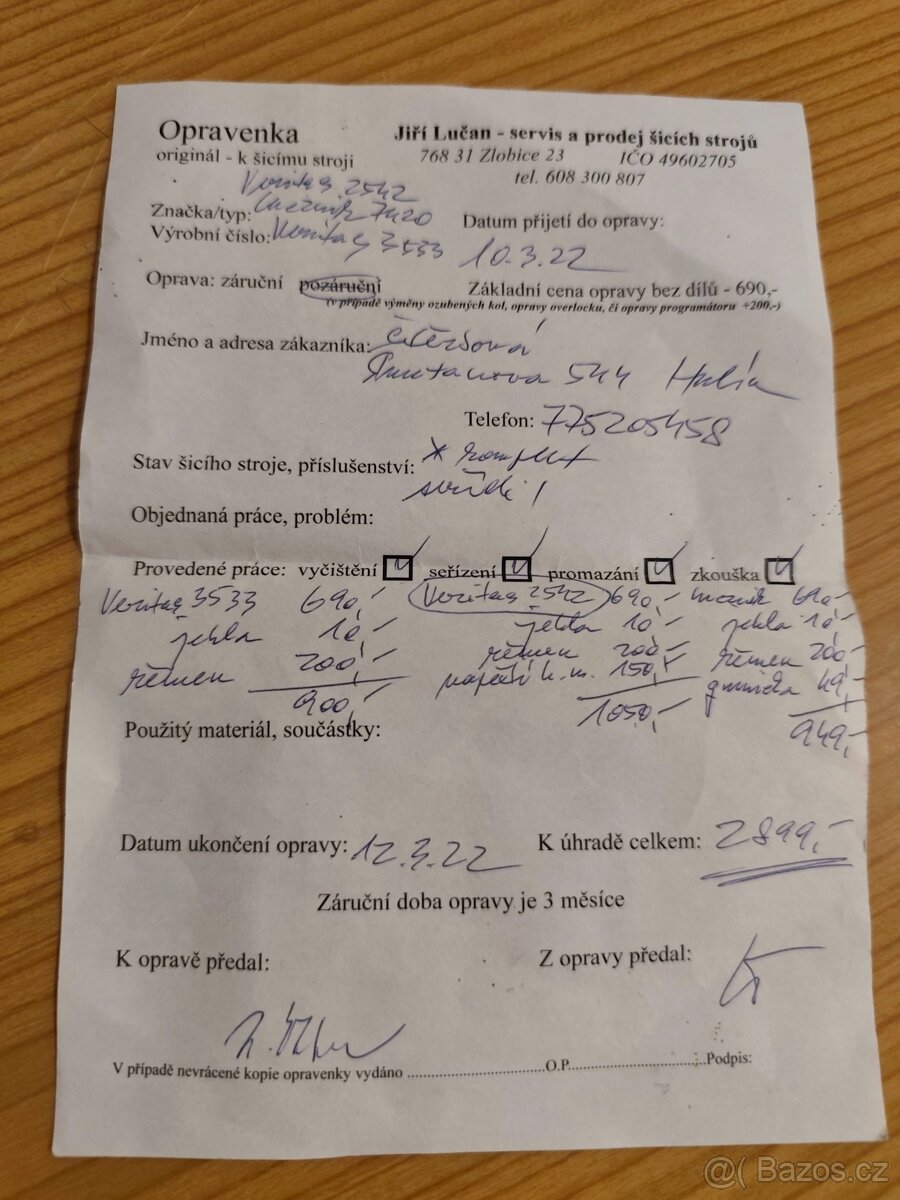 Opravenka
Jiří Lučan - servis a prodej šicích strojů
originál - k šicímu stroji
768 31 Zlobice 23 IČO 49602705
tel. 608 300 807
Veritas 2542
Značka/typ: Lucznik 7420
Datum přijetí do opravy:
Výrobní číslo: Veritas 3533
10.3.22
Oprava: záruční pozáruční
Základní cena opravy bez dílů - 690,-
(v případě výměny ozubených kol, opravy overlocku, či opravy programátoru +200,-)
Jméno a adresa zákazníka:
544 Hulín
Telefon: 775205458
Stav šicího stroje, příslušenství: * komplet
Objednaná práce, problém:
Provedené práce: vyčištění seřízení promazání zkouška
Veritas 3533 690,- Veritas 2542 690,- 690,-
jehla 10,- jehla 10,- jehla 10,-
řemen 200,- řemen 200,- řemen 200,-
150,- gumička 49,-
900,- 1050,- 949,-
Použitý materiál, součástky:
Datum ukončení opravy: 12.3.22 K úhradě celkem: 2899,-
Záruční doba opravy je 3 měsíce
K opravě předal: Z opravy předal:
V případě nevrácené kopie opravenky vydáno ..............................O.P..............................Podpis:
@( Bazos.cz